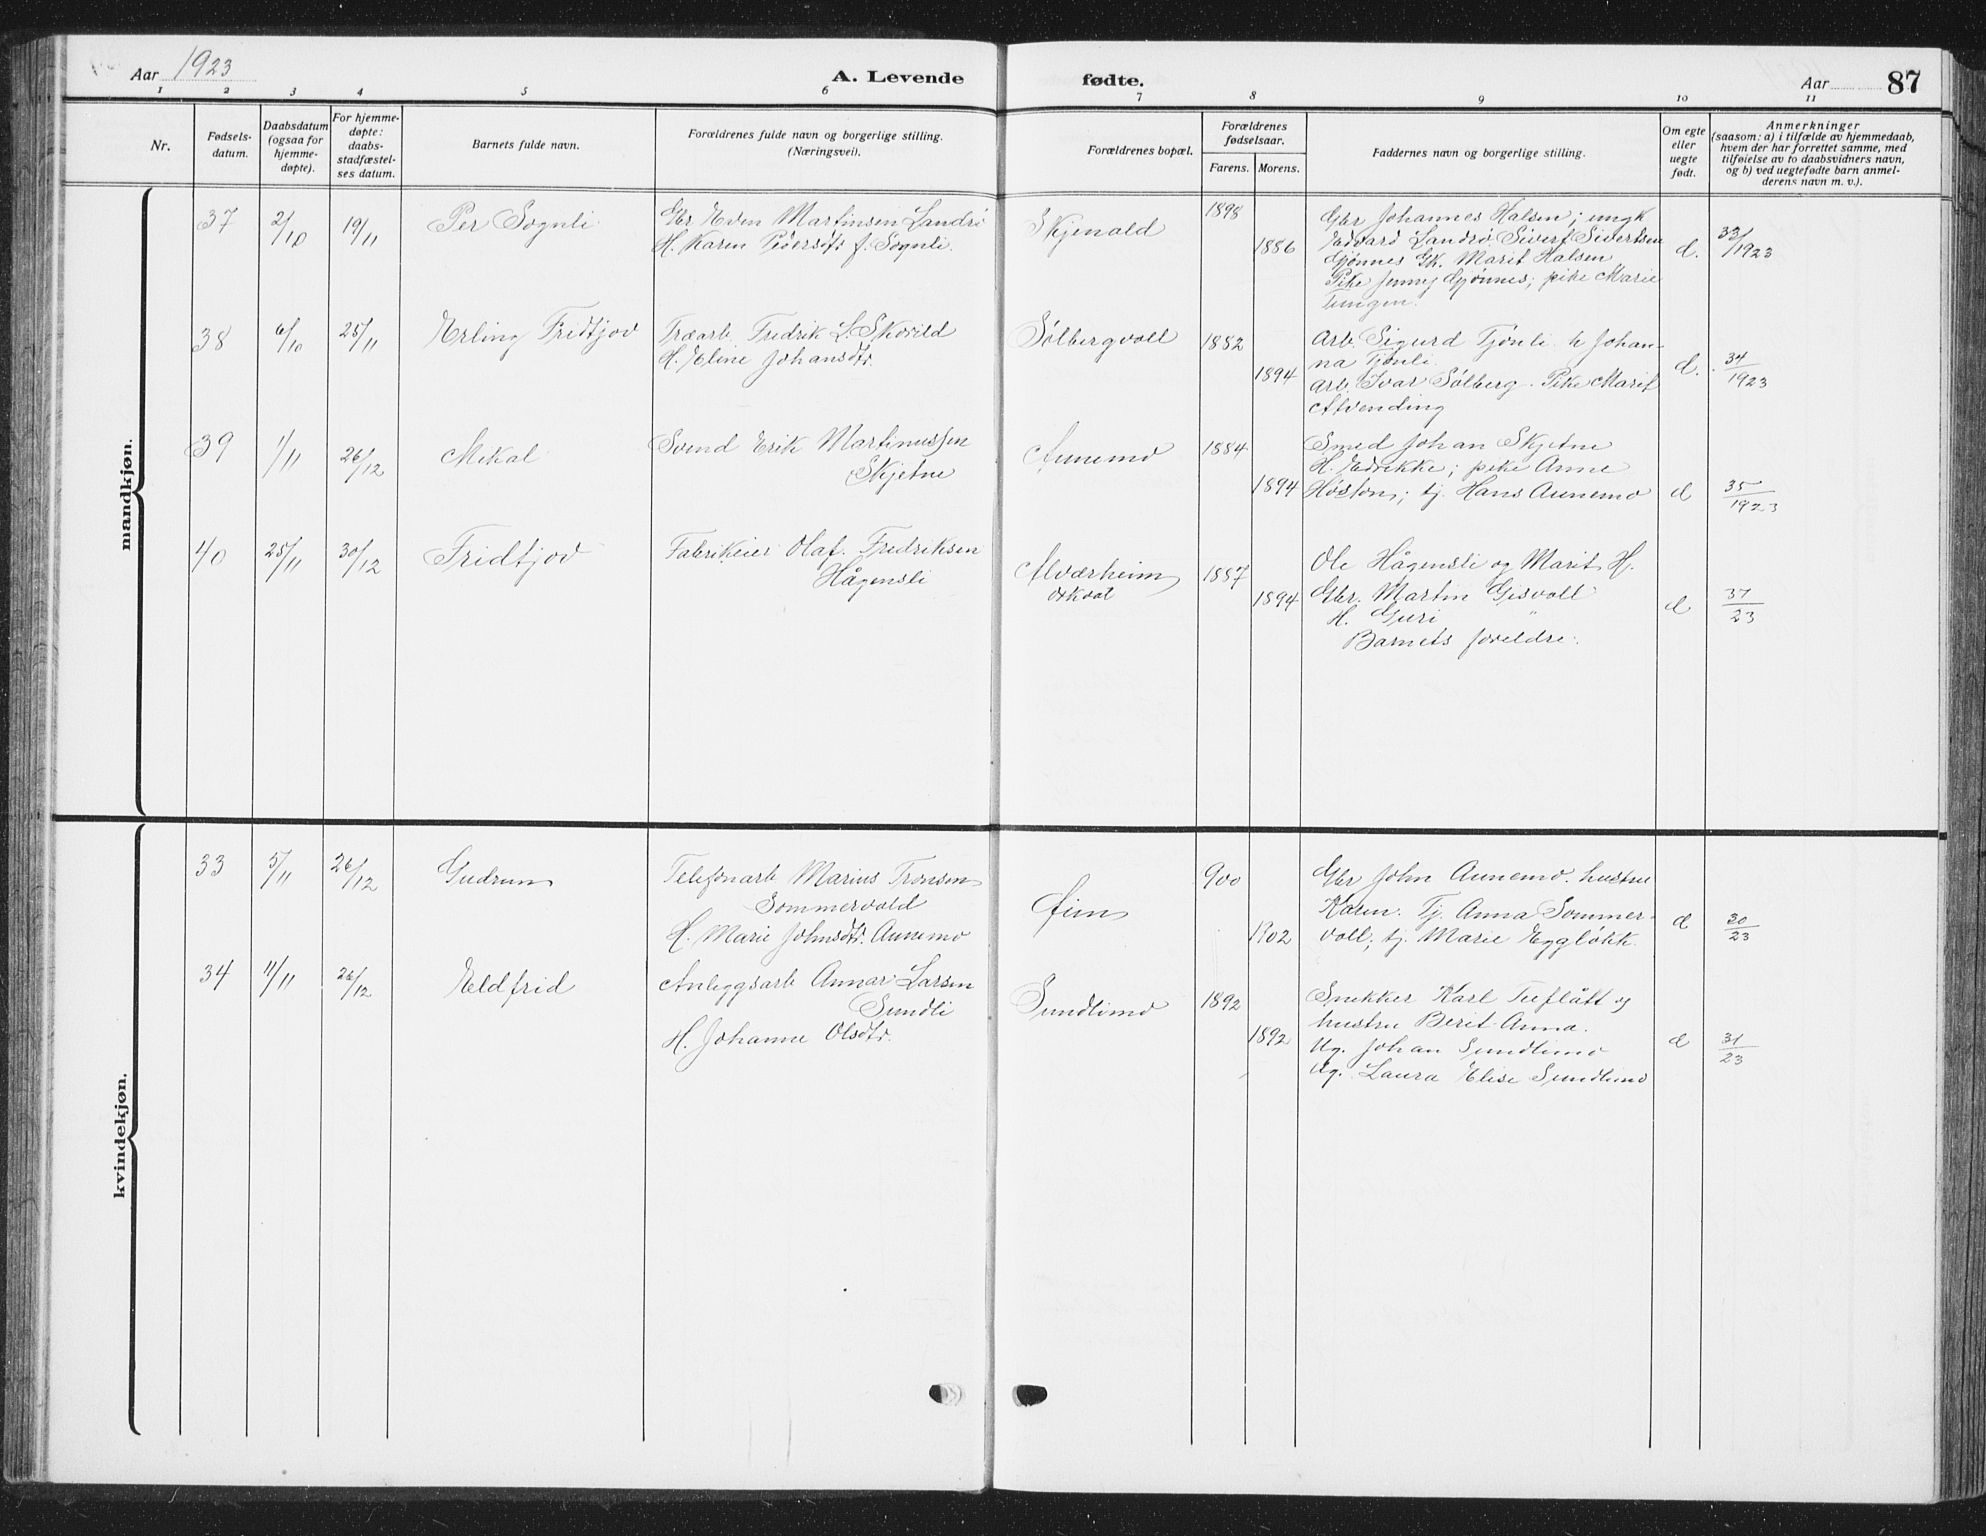 Aar 1923
A. Levende
fødte.
Aar
87
1 2 3 4 5 6 7 8 9 10 11
Nr.
Fødsels-
datum.
Daabsdatum
(ogsaa for
hjemme-
døpte).
For hjemme-
døpte:
daabs-
stadfæstel-
ses datum.
Barnets fulde navn.
Forældrenes fulde navn og borgerlige stilling.
(Næringsvei).
Forældrenes bopæl.
Forældrenes
fødselsaar.
Farens. Morens.
Faddernes navn og borgerlige stilling.
Om egte
eller
uegte
født.
Anmerkninger
(saasom: a) i tilfælde av hjemmedaab,
hvem der har forrettet samme, med
tilføielse av to daabsvidners navn,
og b) ved uegtefødte barn anmel-
derens navn m. v.).
mandkjøn.
37 2/10 19/11 Per Sognli
Gbr Even Martinsen Landrø
H. Karen Pedersdtr f. Sognli.
Skjenald
1898
1886
Gbr Johannes Halsen; ungk
Edvard Landrø. Sivert Sivertsen
Gjønnes Gk. Marit Halsen
Pike Jenny Gjønnes; pike Marie
Tungen.
d.
33/1923
38 6/10 25/11 Erling Fridtjov
Træarb. Fredrik L. Skorild
H. Eline Johansdtr.
Sølbergvoll
1882
1894
Arb. Sigurd Tjønli. h Johan-
na Tjønli.
Arb. Ivar Sølberg. Pike Marit
Alvending
d.
34/1923
39 1/11 26/12 Mikal
Svend Erik Martinussen
Skjetne
Aunemo
1884
1894
Smed Johan Skjetne
H. Edrikke; pike Anne
Høston; tj. Hans Aunemo
d
35/1923
40 25/11 30/12 Fridtjov
Fabrikeier Olaf Fredriksen
Hågensli
Alværheim
1887
1894
Ole Hågensli og Marit H.
Gbr. Martin Gisvoll
H. Guri "
Barnets foreldre.
d
37/23
kvindekjøn.
33 5/11 26/12 Gudrun
Telefonarb Marius Tronsen
Sommervold
H. Marie Johnsdtr. Aunemo
Øim
900
1902
Gbr John Aunemo. hustru
Karen. Tj. Anna Sommer-
voll; tj. Marie Eggløkk.
d
30/23
34 11/11 26/12 Eldfrid
Anleggsarb Annar Larsen
Sundli
H. Johanne Olsdtr.
Sundlimo
1892
1892
Snekker Karl Tuflått og
hustru Berit Anna.
Ug. Johan Sundlimo
Ug. Laura Elise Sundlimo
d
31/23